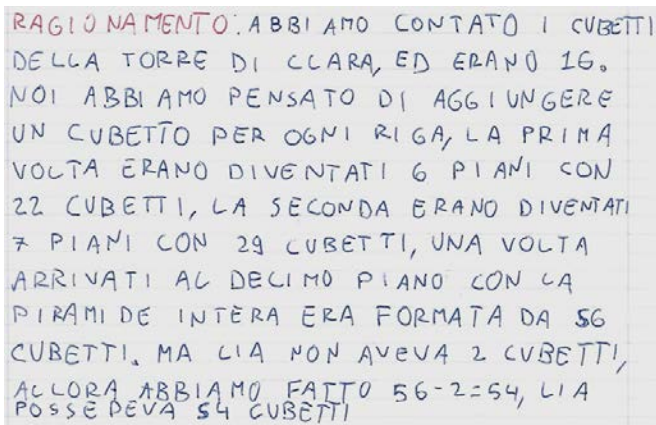 RAGIONAMENTO: ABBIAMO CONTATO I CUBETTI
DELLA TORRE DI CLARA, ED ERANO 16.
NOI ABBIAMO PENSATO DI AGGIUNGERE
UN CUBETTO PER OGNI RIGA, LA PRIMA
VOLTA ERANO DIVENTATI 6 PIANI CON
22 CUBETTI, LA SECONDA ERANO DIVENTATI
7 PIANI CON 29 CUBETTI, UNA VOLTA
ARRIVATI AL DECIMO PIANO CON LA
PIRAMIDE INTERA ERA FORMATA DA 56
CUBETTI. MA LIA NON AVEVA 2 CUBETTI,
ALLORA ABBIAMO FATTO 56-2=54, LIA
POSSEDEVA 54 CUBETTI